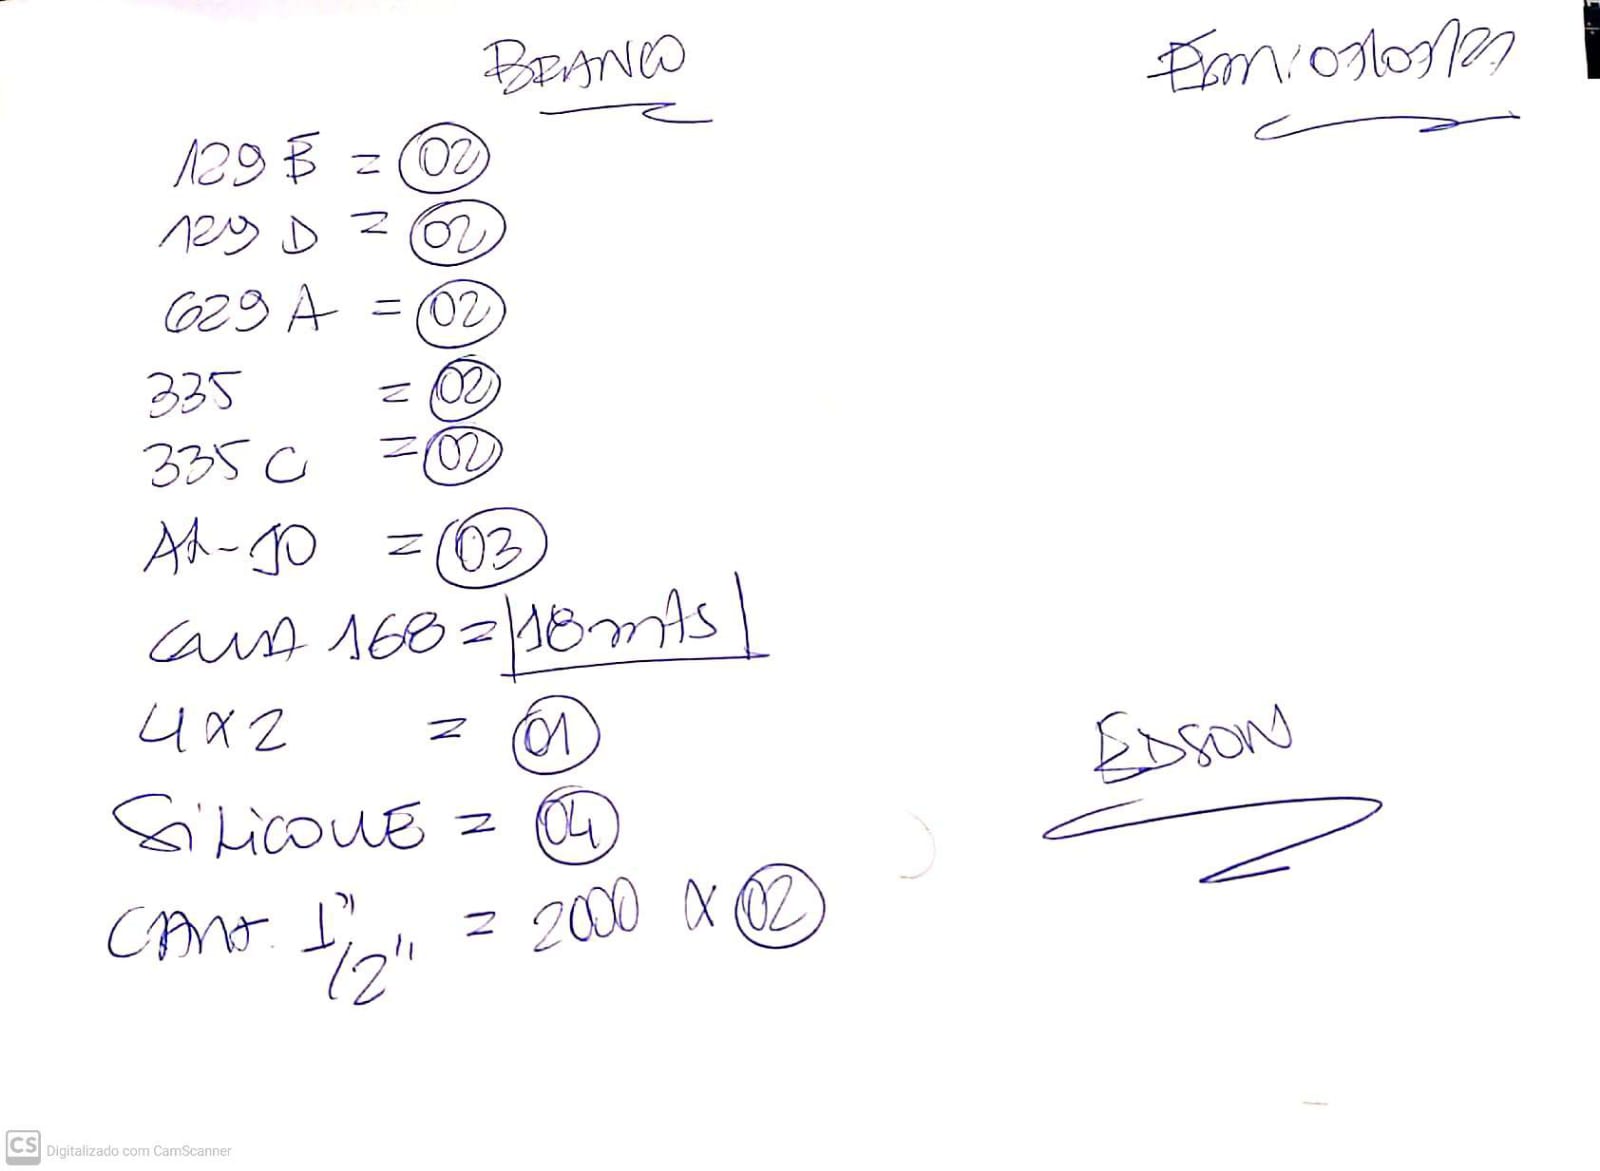 BRANCO
Em: 03/03/21
129 B = 02
129 D = 02
629 A = 02
335 = 02
335 C = 02
A1-JO = 03
168 = 18 mts
4x2 = 01
SiLicoNE = 04
CANT. 1"/2" = 2000 x 02
EDSON
CS Digitalizado com CamScanner